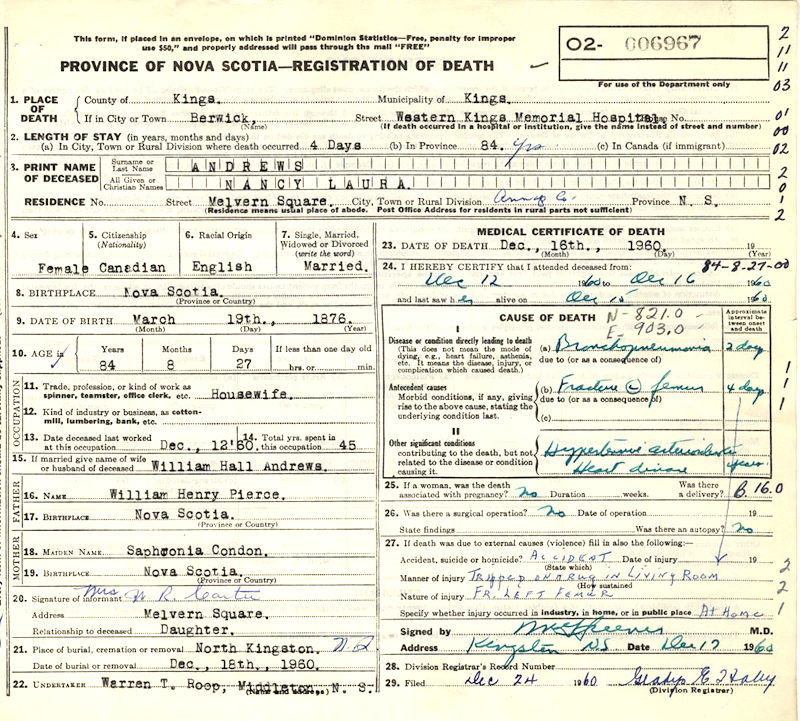 This form, if placed in an envelope, on which is printed "Dominion Statistics—Free, penalty for improper
use $50," and properly addressed will pass through the mail "FREE"
O2- 006967
For use of the Department only
PROVINCE OF NOVA SCOTIA—REGISTRATION OF DEATH
2
11
11
03
01
00
02
2
0
1
2
1. PLACE OF DEATH County of Kings. Municipality of Kings.
If in City or Town Berwick, Street Western Kings Memorial Hospital No.
(Name) (If death occurred in a hospital or institution, give the name instead of street and number)
2. LENGTH OF STAY (in years, months and days)
(a) In City, Town or Rural Division where death occurred 4 Days (b) In Province 84. yrs (c) In Canada (if immigrant)
3. PRINT NAME OF DECEASED Surname or Last Name ANDREWS
All Given or Christian Names NANCY LAURA.
RESIDENCE No. Street Melvern Square. City, Town or Rural Division Annap Co. Province N. S.
(Residence means usual place of abode. Post Office Address for residents in rural parts not sufficient)
4. Sex 5. Citizenship (Nationality) 6. Racial Origin 7. Single, Married, Widowed or Divorced (write the word)
Female Canadian English Married.
8. BIRTHPLACE Nova Scotia.
(Province or Country)
9. DATE OF BIRTH March 19th., 1876.
(Month) (Day) (Year)
10. AGE in Years Months Days If less than one day old
84 8 27 hrs. or min.
OCCUPATION
11. Trade, profession, or kind of work as spinner, teamster, office clerk, etc. Housewife.
12. Kind of industry or business, as cotton-mill, lumbering, bank, etc.
13. Date deceased last worked at this occupation Dec., 12'60. 14. Total yrs. spent in this occupation 45
15. If married give name of wife or husband of deceased William Hall Andrews.
FATHER
16. NAME William Henry Pierce.
17. BIRTHPLACE Nova Scotia.
(Province or Country)
MOTHER
18. MAIDEN NAME Saphronia Condon.
19. BIRTHPLACE Nova Scotia.
(Province or Country)
20. Signature of informant Mrs W R Carter
Address Melvern Square.
Relationship to deceased Daughter.
21. Place of burial, cremation or removal North Kingston. N S
Date of burial or removal Dec., 18th., 1960.
22. UNDERTAKER Warren T. Roop, Middleton, N. S.
(Name and address)
MEDICAL CERTIFICATE OF DEATH
23. DATE OF DEATH Dec., 16th., 1960. 19
(Month) (Day) (Year)
24. I HEREBY CERTIFY that I attended deceased from: 84-8-27-00
Dec 12 1960 to Dec 16 1960
and last saw h er alive on Dec 15 1960
CAUSE OF DEATH N-821.0
E-903.0
Approximate interval between onset and death
I
Disease or condition directly leading to death
(This does not mean the mode of dying, e.g., heart failure, asthenia, etc. It means the disease, injury, or complication which caused death.)
(a) Bronchopneumonia 2 day
due to (or as a consequence of)
Antecedent causes
Morbid conditions, if any, giving rise to the above cause, stating the underlying condition last.
(b) Fracture L femur 4 day
due to (or as a consequence of)
(c)
1
1
1
II
Other significant conditions
contributing to the death, but not related to the disease or condition causing it.
Hypertensive
Heart disease years
25. If a woman, was the death associated with pregnancy? no Duration weeks. Was there a delivery? B.16.0
26. Was there a surgical operation? no Date of operation 19
State findings Was there an autopsy? No
27. If death was due to external causes (violence) fill in also the following:—
Accident, suicide or homicide? ACCIDENT Date of injury 19 2
(State which)
Manner of injury TRIPPED ON RUG IN LIVING ROOM
(How sustained) 2
Nature of injury FR. LEFT FEMUR
Specify whether injury occurred in industry, in home, or in public place AT HOME 1
Signed by M.D.
Address Kingston N.S Date Dec 17 1960
28. Division Registrar's Record Number
29. Filed Dec 24 1960 Gladys E
(Division Registrar)